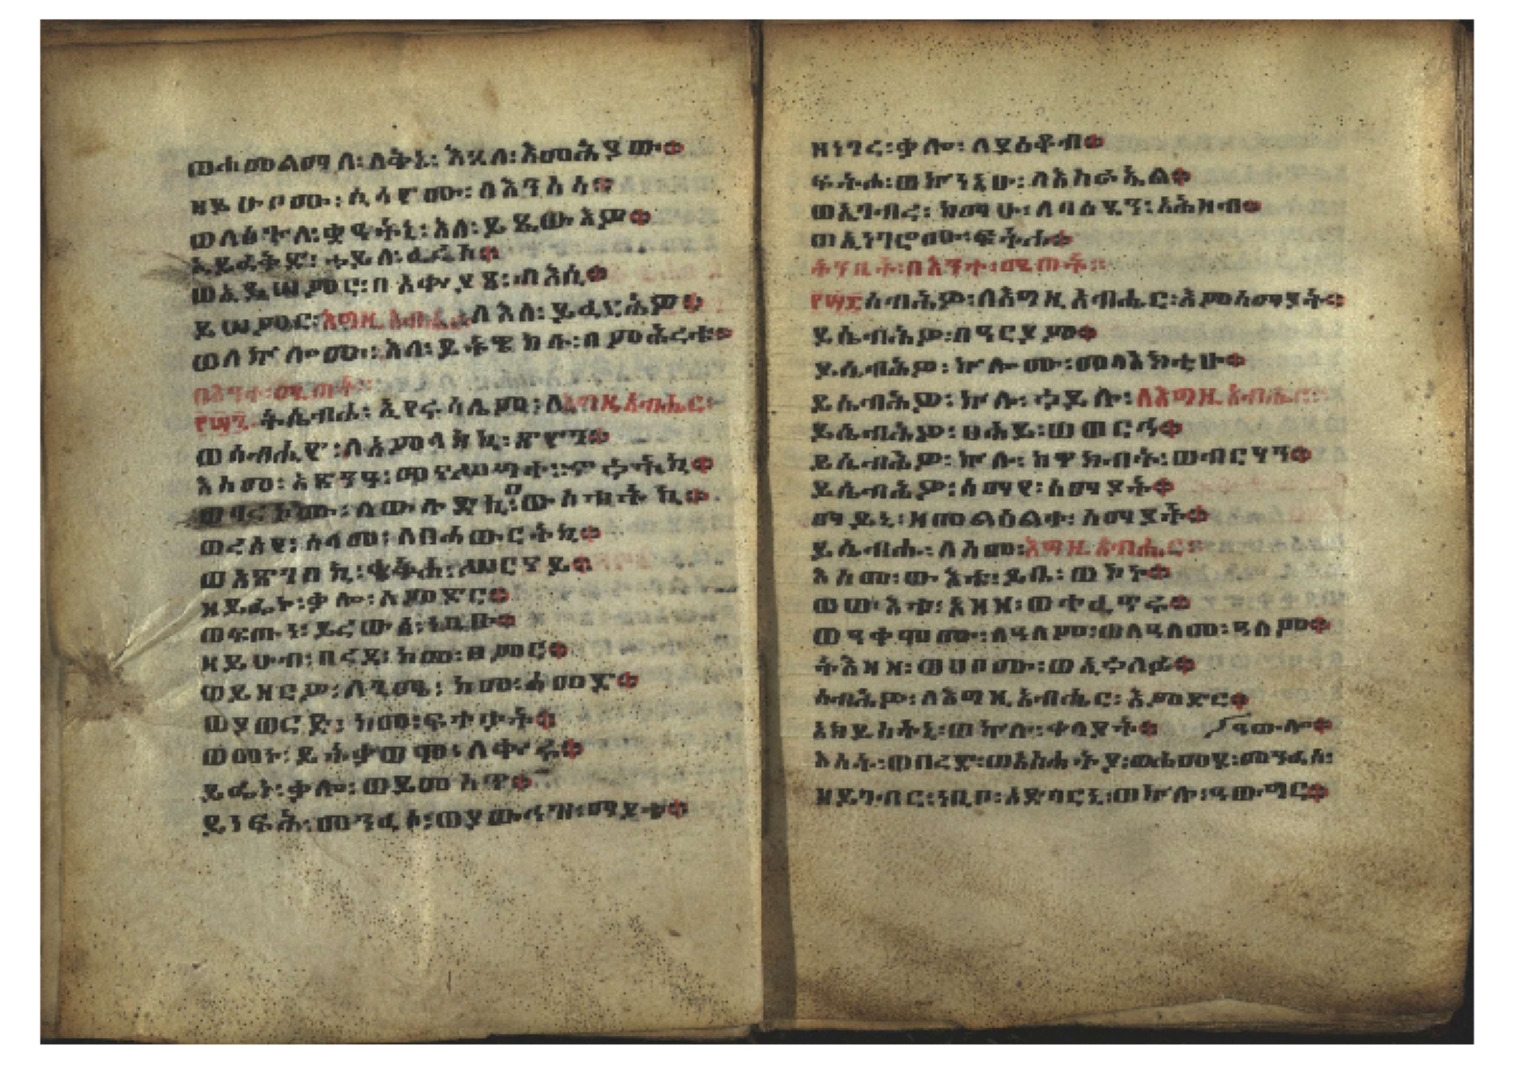 ወሐመልማለ፡ ለቅኔ፡ እጓለ፡ እመሕያው።
ዘይሁቦሙ፡ ሲሳዮሙ፡ ለእንስሳ።
ወለእጕለ፡ ቋዓትኒ፡ እለ፡ ይጼውእዎ።
ኢይፈቅድ፡ ኃይለ፡ ፈረስ።
ወኢይሠምር፡ በአቍያጽ፡ ብእሲ።
ይሠምር፡ እግዚአብሔር፡ ለእለ፡ ይፈርህዎ።
ወለኵሎሙ፡ እለ፡ ይትዌከሉ፡ በምሕረቱ።
በእንተ፡ ሚጠት፡
ትሴብሖ፡ ኢየሩሳሌም፡ ለእግዚአብሔር፡
ወሰብሒዮ፡ ለአምላክኪ፡ ጽዮን።
እስመ፡ አጽንዓ፡ መናሥግተ፡ ኆኃትኪ።
ለውሉድኪ፡ በውስቴትኪ።
ወረሰየ፡ ሰላመ፡ ለበሓውርትኪ።
ወአጽገበኪ፡ ቄቅሐ፡ ሥርናይ።
ዘይፌኑ፡ ቃሎ፡ ለምድር።
ወፍጡነ፡ ይረውጽ፡ ነቢቡ።
ዘይሁብ፡ በረደ፡ ከመ፡ ፀምር።
ወይዘርዎ፡ ለጊሜ፡ ከመ፡ ሐመድ።
ወያወርድ፡ ከመ፡ ፍተታት።
ወመኑ፡ ይትቃወሞ፡ ለቍሩ።
ይፌኑ፡ ቃሎ፡ ወይመስዎ።
ይነፍሕ፡ መንፈሶ፡ ወያውኅዝ፡ ማያተ።
ዘነገረ፡ ቃሎ፡ ለያዕቆብ።
ፍትሖ፡ ወኵነኔሁ፡ ለእስራኤል።
ወኢገብረ፡ ከማሁ፡ ለባዕዳን፡ አሕዛብ።
ወኢነገሮሙ፡ ፍትሖ።
ትንቢት፡ በእንተ፡ ሚጠት፡
ሰብሕዎ፡ ለእግዚአብሔር፡ እምሰማያት።
ይሴብሕዎ፡ በዓርያም።
ይሴብሕዎ፡ ኵሎሙ፡ መላእክቲሁ።
ይሴብሕዎ፡ ኵሉ፡ ኃይሉ፡ ለእግዚአብሔር፡
ይሴብሕዎ፡ ፀሐይ፡ ወወርኅ።
ይሴብሕዎ፡ ኵሉ፡ ከዋክብት፡ ወብርሃን።
ይሴብሕዎ፡ ሰማየ፡ ሰማያት።
ማይኒ፡ ዘመልዕልተ፡ ሰማያት።
ይሴብሑ፡ ለስመ፡ እግዚአብሔር፡
እስመ፡ ውእቱ፡ ይቤ፡ ወኮኑ።
ወውእቱ፡ አዘዘ፡ ወተፈጥሩ።
ወዓቀሞሙ፡ ለዓለም፡ ወለዓለመ፡ ዓለም።
ትእዛዘ፡ ወሀቦሙ፡ ወኢኀለፉ።
ሰብሕዎ፡ ለእግዚአብሔር፡ እምድር።
አክይስትኒ፡ ወኵሉ፡ ቀላያት።
እሳት፡ ወበረድ፡ ወአስሐትያ፡ ወሐመዳ፡ መንፈሰ፡ ዓውሎ።
ዘይገብር፡ ነቢቦ፡ አድባርኒ፡ ወኵሉ፡ ዓውግር።